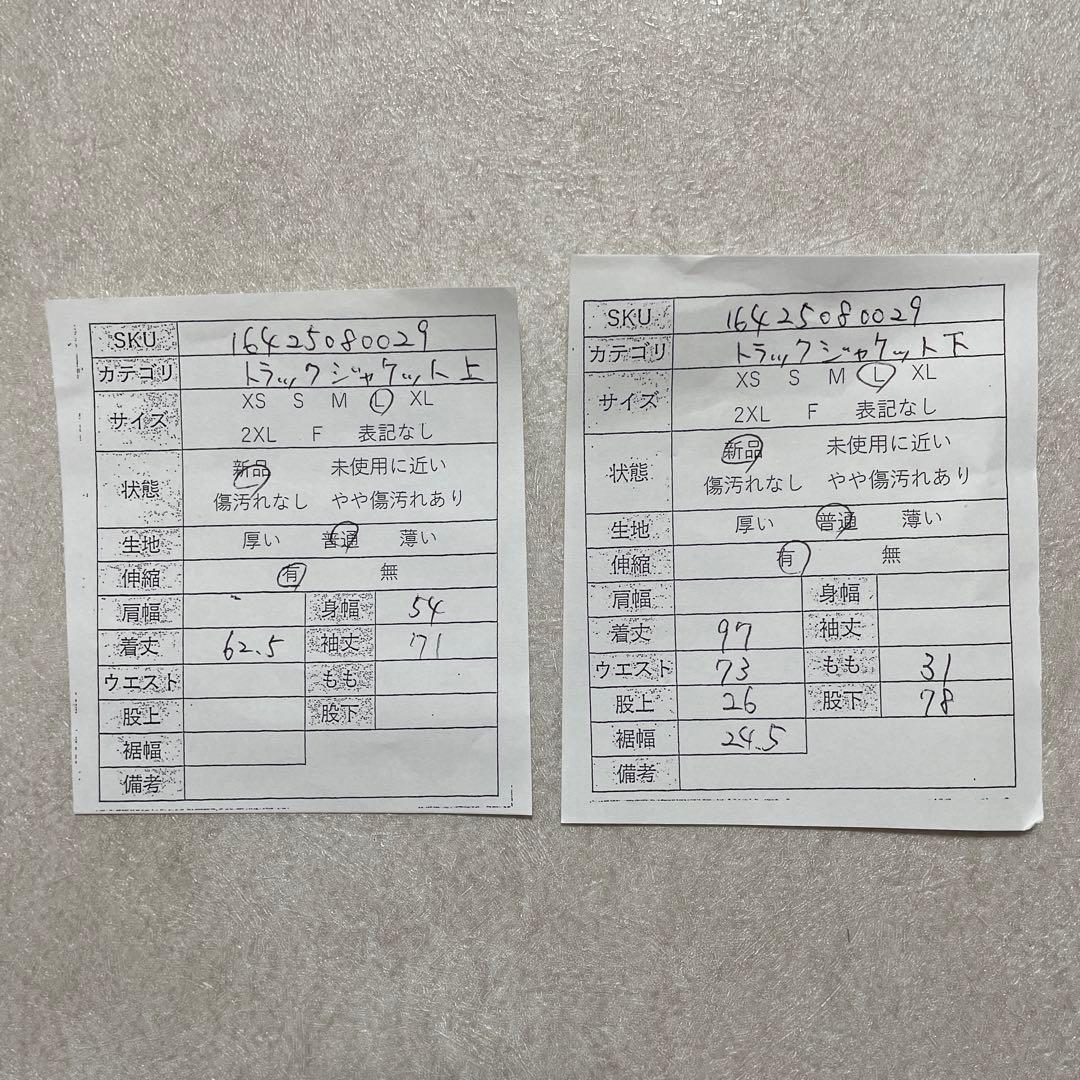 SKU 16425080029
カテゴリ トラックジャケット上
サイズ XS S M L XL
2XL F 表記なし
状態 新品 未使用に近い
傷汚れなし やや傷汚れあり
生地 厚い 普通 薄い
伸縮 有 無
肩幅 身幅 54
着丈 62.5 袖丈 71
ウエスト もも
股上 股下
裾幅
備考
SKU 16425080029
カテゴリ トラックジャケット下
サイズ XS S M L XL
2XL F 表記なし
状態 新品 未使用に近い
傷汚れなし やや傷汚れあり
生地 厚い 普通 薄い
伸縮 有 無
肩幅 身幅
着丈 97 袖丈
ウエスト 73 もも 31
股上 26 股下 78
裾幅 24.5
備考